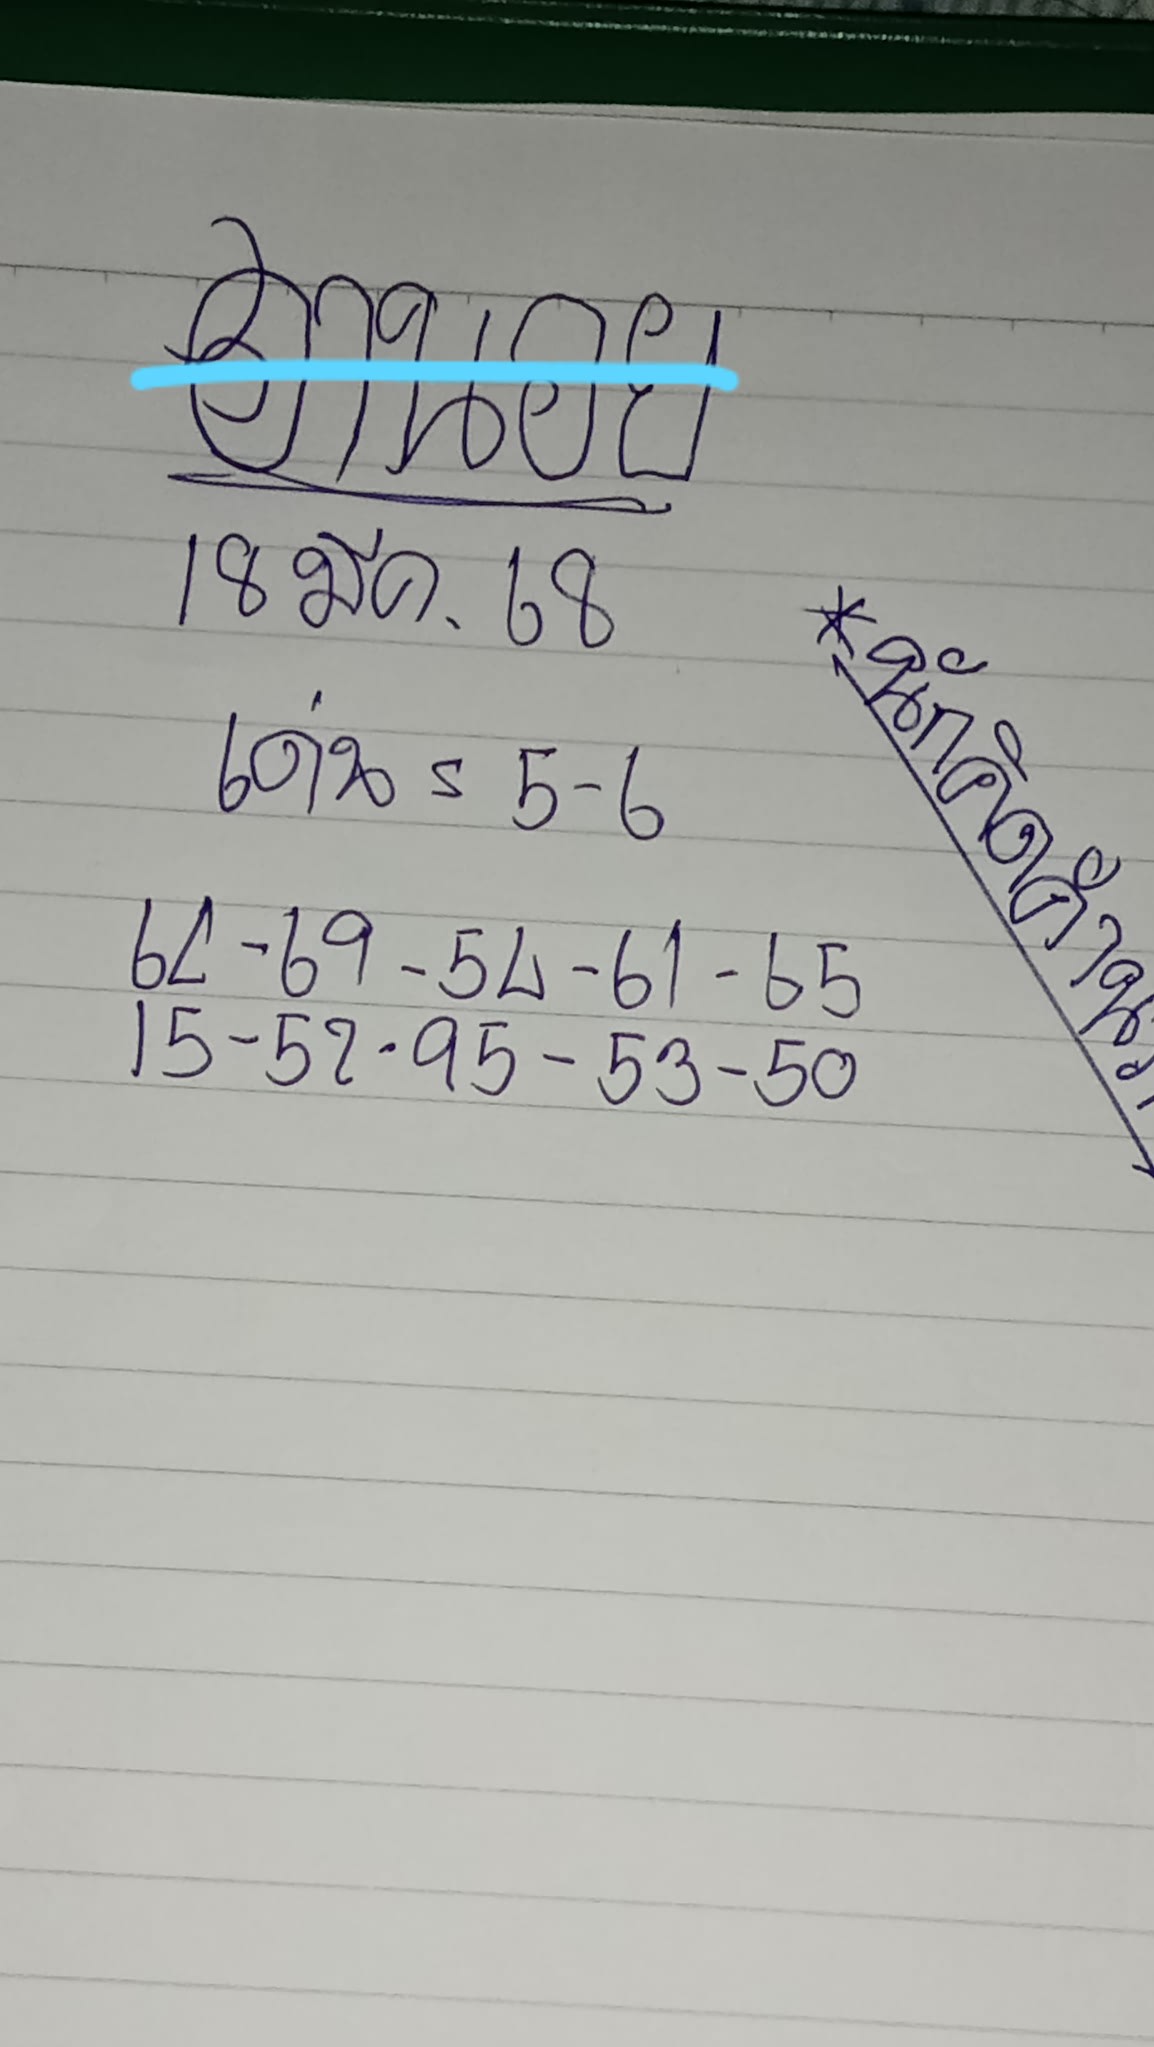 ฮานอย
18 มีค. 68
เด่น = 5-6
64-69-54-61-65
15-52-95-53-50
*นักคิดคำนว